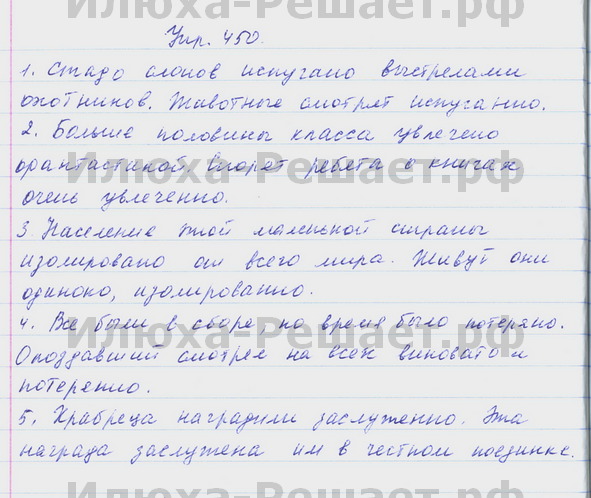 Илюха-Решает.рф
Упр. 450.
1. Стадо слонов испугано выстрелами
охотников. Животные смотрят испуганно.
2. Больше половины класса увлечено
фантастикой. Спорят ребята о книгах
Илюха-Решает.рф
очень увлеченно.
3. Население этой маленькой страны
изолировано от всего мира. Живут они
одиноко, изолированно.
Илюха-Решает.рф
4. Все были в сборе, но время было потеряно.
Опоздавший смотрел на всех виновато и
потерянно.
5. Храбреца наградили заслуженно. Эта
награда заслужена им в честном поединке.
Илюха-Решает.рф